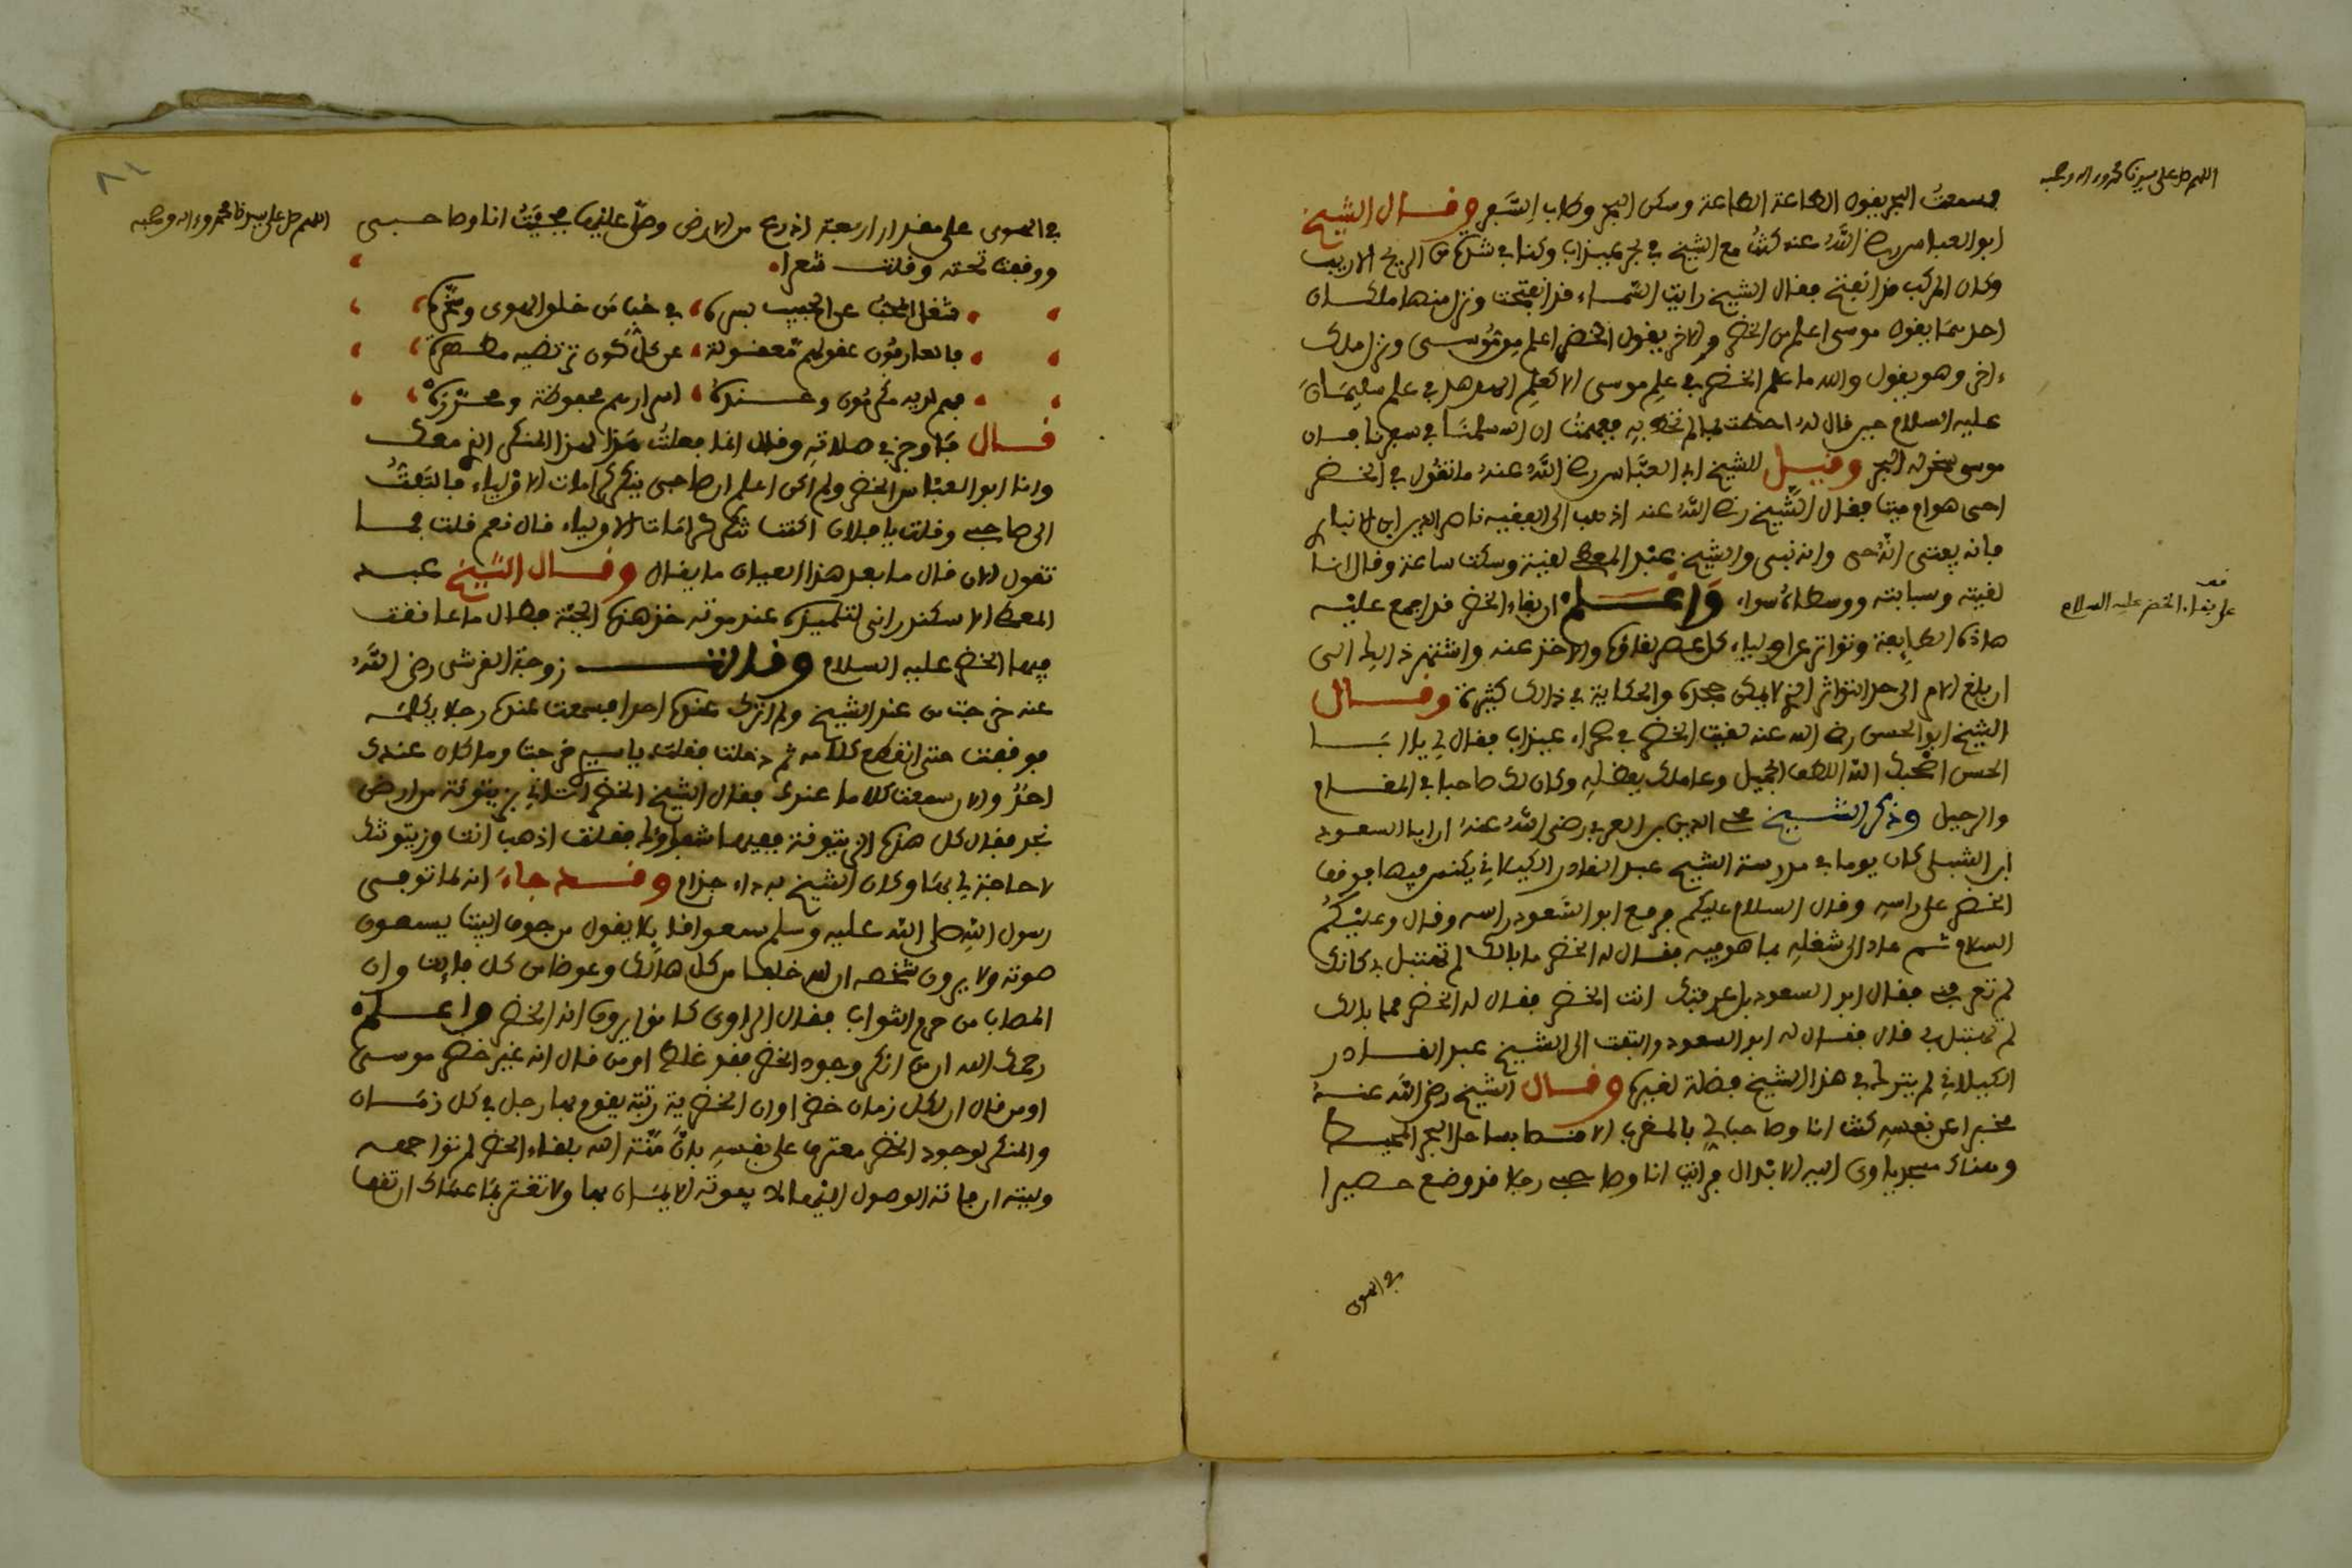 اللهم صل على سيدنا محمد وءاله وصحبه
فسمعت البحر يقول الطاعة الطاعة وسكن البحر وطاب السفر وقال الشيخ
ابو العباس رضي الله عنه كنت مع الشيخ في بحر عيذاب وكنا في شدة من الريح الازيب
وكان المركب قد انفتح فقال الشيخ رايت السماء قد انفتحت ونزل منها ملكان
احدهما يقول موسى اعلم من الخضر والاخر يقول الخضر اعلم من موسى ونزل ملك
ءاخر وهو يقول والله ما علم الخضر في علم موسى الا كعلم الهدهد في علم سليمان
عليه السلام حين قال له احطت بما لم تحط به ففهمت ان الله سلمنا في سفرنا فان
موسى سخر له البحر وقيل للشيخ ابي العباس رضي الله عنه ما تقول في الخضر
احي هو ام ميت فقال الشيخ رضي الله عنه اذهب الى الفقيه ناصر الدين ابن الانباري
فانه يفتي انه حي وانه نبي والشيخ عبد المعطي لقيه وسكت ساعة وقال انا
لقيته وسبابته ووسطاه سواء واعلم ان بقاء الخضر قد اجمع عليه
قف
على بقاء الخضر عليه السلام
هاذه الطايفة وتواتر عن اولياء كل عصر لقاؤه والاخذ عنه واشتهر ذالك الى
ان بلغ الامر الى حد التواتر الذي لا يمكن جحده والحكاية في ذالك كثيرة وقال
الشيخ ابو الحسن رضي الله عنه لقيت الخضر في صحراء عيذاب فقال لي يا ابا
الحسن اصحبك الله اللطف الجميل وعاملك بفضله وكان لك صاحبا في المقام
والرحيل وذكر الشيخ محي الدين بن العربي رضي الله عنه ان ابا السعود
ابن الشبلي كان يوما في مدرسة الشيخ عبد القادر الكيلاني يكنس فيها فوقف
الخضر على راسه وقال السلام عليكم فرفع ابو السعود راسه وقال وعليكم
السلام ثم عاد الى شغله بما هو فيه فقال له الخضر ما بالك لم تحتفل بي كانك
لم تعرفني فقال ابو السعود بل عرفتك انت الخضر فقال له الخضر فما بالك
لم تحتفل بي قال فقال له ابو السعود والتفت الى الشيخ عبد القادر
الكيلاني لم يترك في هذا الشيخ فضلة لغيره وقال الشيخ رضي الله عنه
مخبرا عن نفسه كنت انا وصاحب لي بالمغرب الاقصا بساحل البحر المحيط
وهناك مسجد ياوي اليه الابدال فرايت انا وصاحبي رجلا قد وضع حصيرا
في الهوى
اللهم صل على سيدنا محمد وءاله وصحبه
في الهوى على مقدار اربعة اذرع من الارض وصلى عليها فجيت انا وصاحبي
ووقفت تحته وقلت شعرا
شغل المحب عن الحبيب بسره في حب من خلق الهوى وسخره
فالعارفون عقولهم معقولة عن كل كون ترتضيه مطهرة
فهم لديه مكرمون وعنده اسرارهم محفوظة ومحررة
قال فاوجز في صلاته وقال انما فعلت هذا لهذا المنكر الذي معك
وانا ابو العباس الخضر ولم اكن اعلم ان صاحبي ينكر كرامات الاولياء فالتفت
الى صاحبي وقلت يا فلان اكنت تنكر كرامات الاولياء قال نعم قلت فما
تقول الان قال ما بعد هذا العيان ما يقال وقال الشيخ عبد
المعطي الاسكندراني لتلميذه عند موته خذ هذه الجبة فطال ما عانقت
فيها الخضر عليه السلام وقالت زوجة القرشي رضي الله
عنه خرجت من عند الشيخ ولم اترك عنده احدا فسمعت عنده رجلا يكلمه
فوقفت حتى انقطع كلامه ثم دخلت فقلت يا سيدي خرجت وما كان عندك
احد والان سمعت كلاما عندك فقال الشيخ الخضر اتاني بزيتونة من ارض
نجد فقال كل هذه الزيتونة ففيها شفاؤك فقلت اذهب انت وزيتونتك
لا حاجة لي بها وكان الشيخ به داء جذام وقد جاء انه لما توفي
رسول الله صلى الله عليه وسلم سمعوا قايلا يقول من جوف البيت يسمعون
صوته ولا يرون شخصه ان لله خلفا من كل هالك وعوضا من كل فايت وان
المصاب من حرم الثواب فقال الراوي كانوا يرون انه الخضر واعلم
رحمك الله ان من انكر وجود الخضر فقد غلط او من قال انه غير خضر موسى
او من قال ان لكل زمان خضرا وان الخضرية رتبة يقوم بها رجل في كل زمان
والمنكر لوجود الخضر معترف على نفسه بان منة الله بلقاء الخضر لم تواجهه
وليته ان فاته الوصول اليها لا يفوته الايمان بها ولا تغتر بما عساك ان تقف